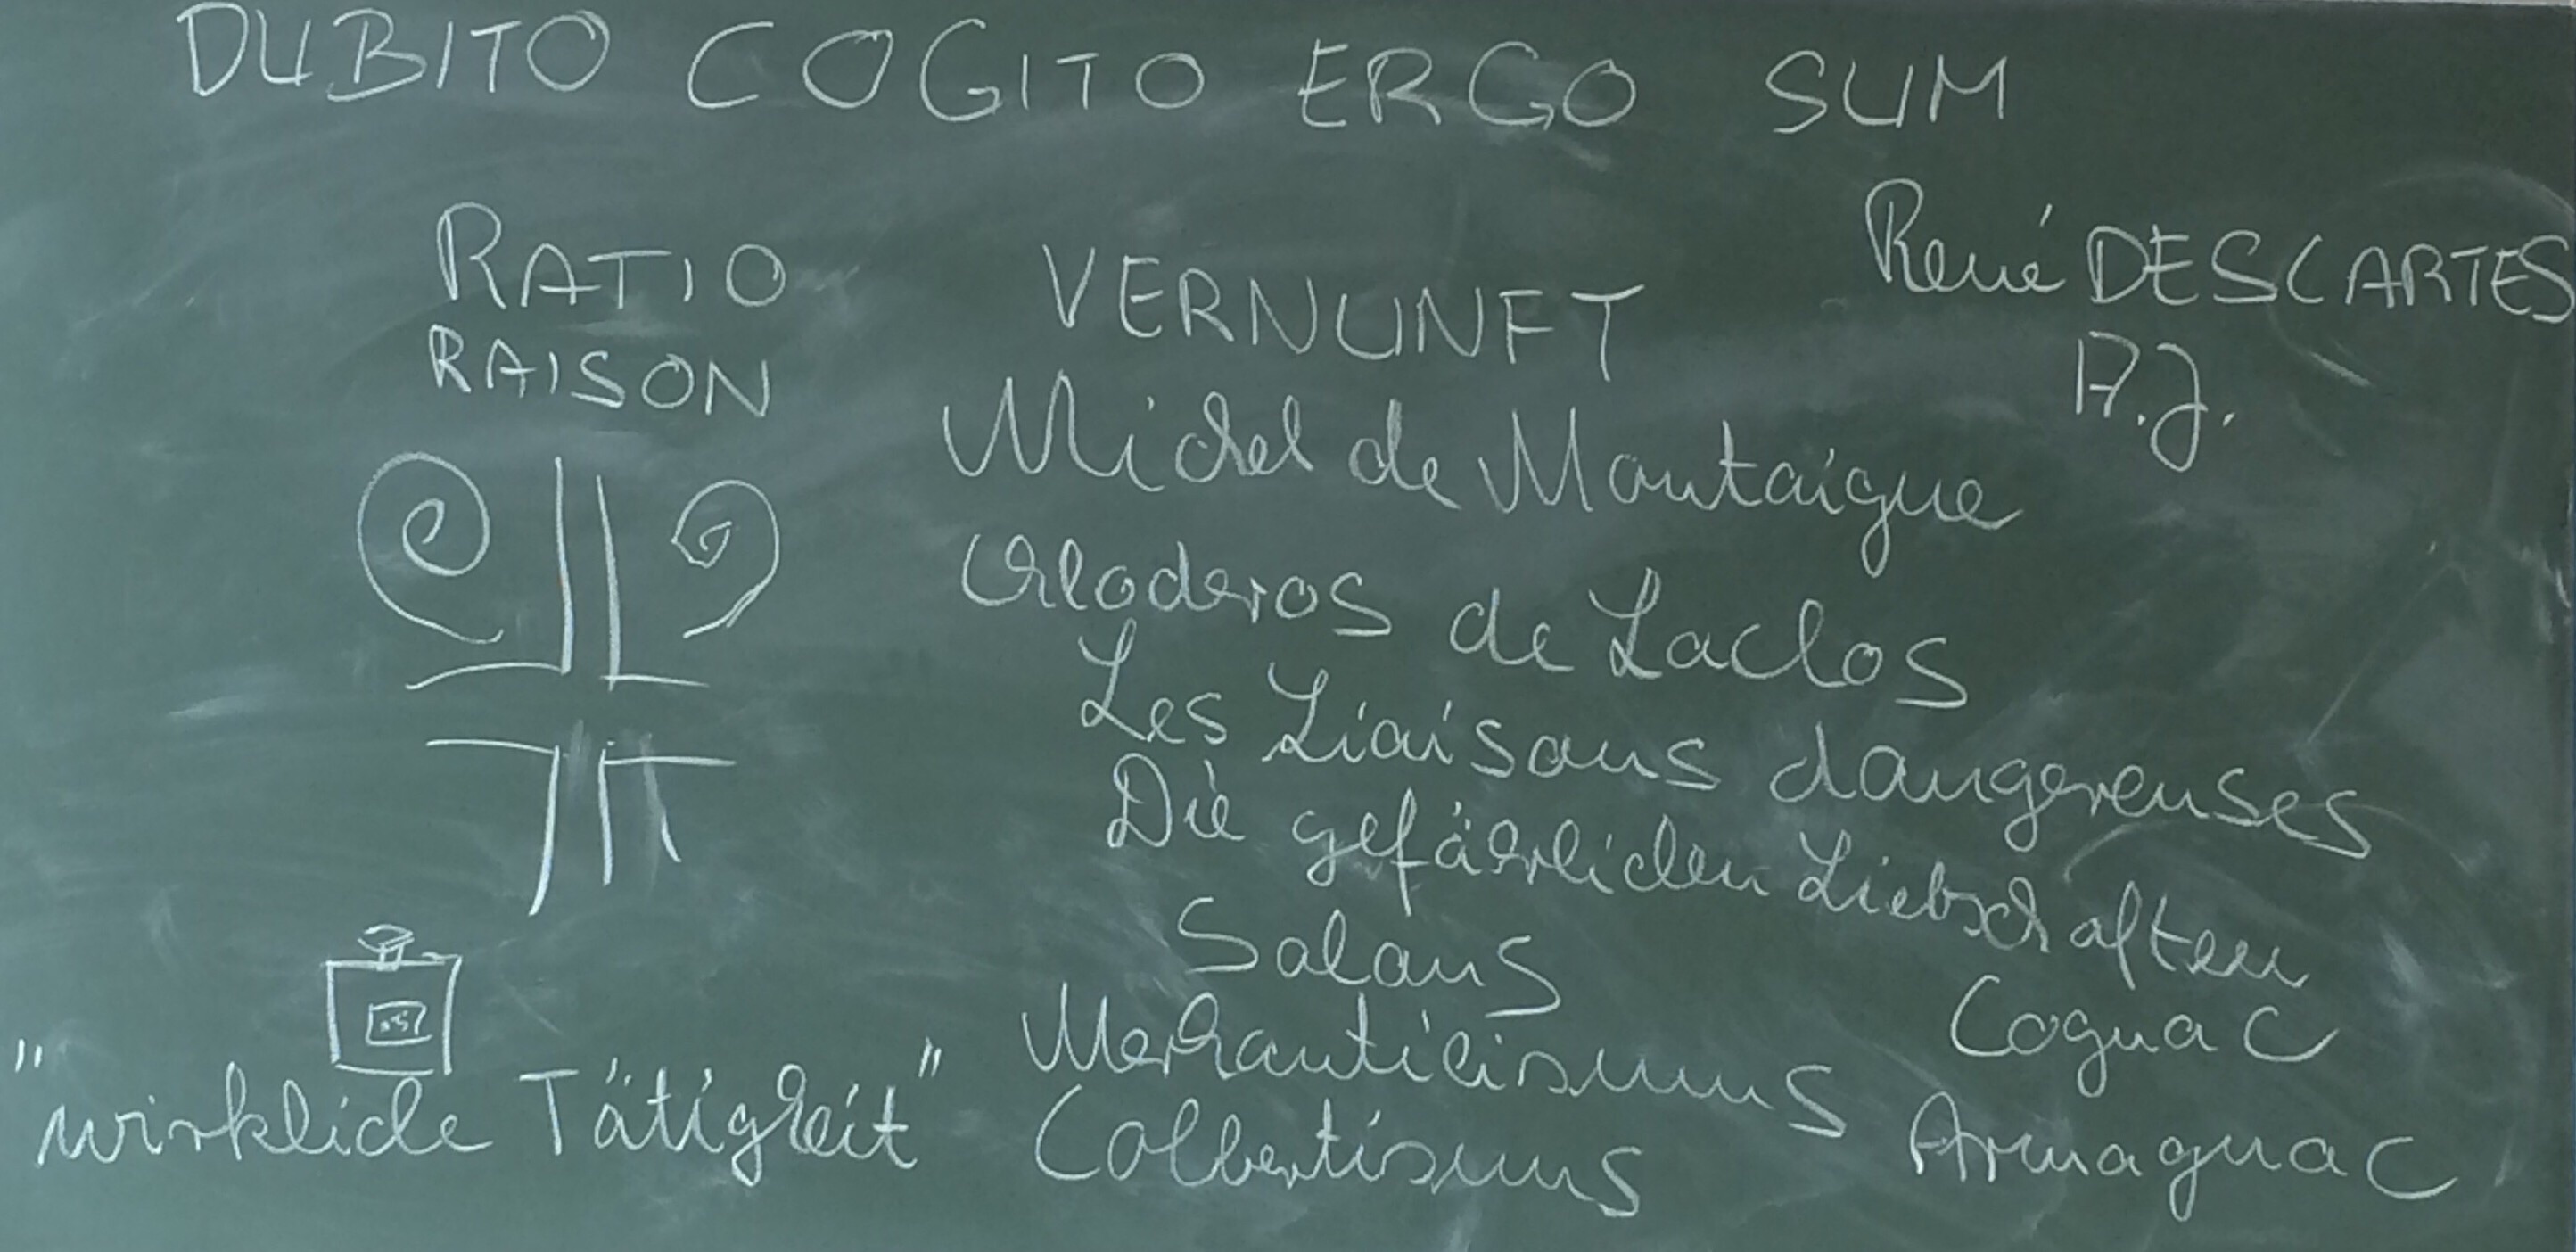 DUBITO COGITO ERGO SUM
René DESCARTES
17. J.
RATIO
VERNUNFT
RAISON
Michel de Montaigne
Choderos de Laclos
Les Liaisons dangereuses
Die gefährlichen Liebschaften
Salons
Cognac
Merkantilismus
"wirkliche Tätigkeit"
Colbertismus
Armagnac